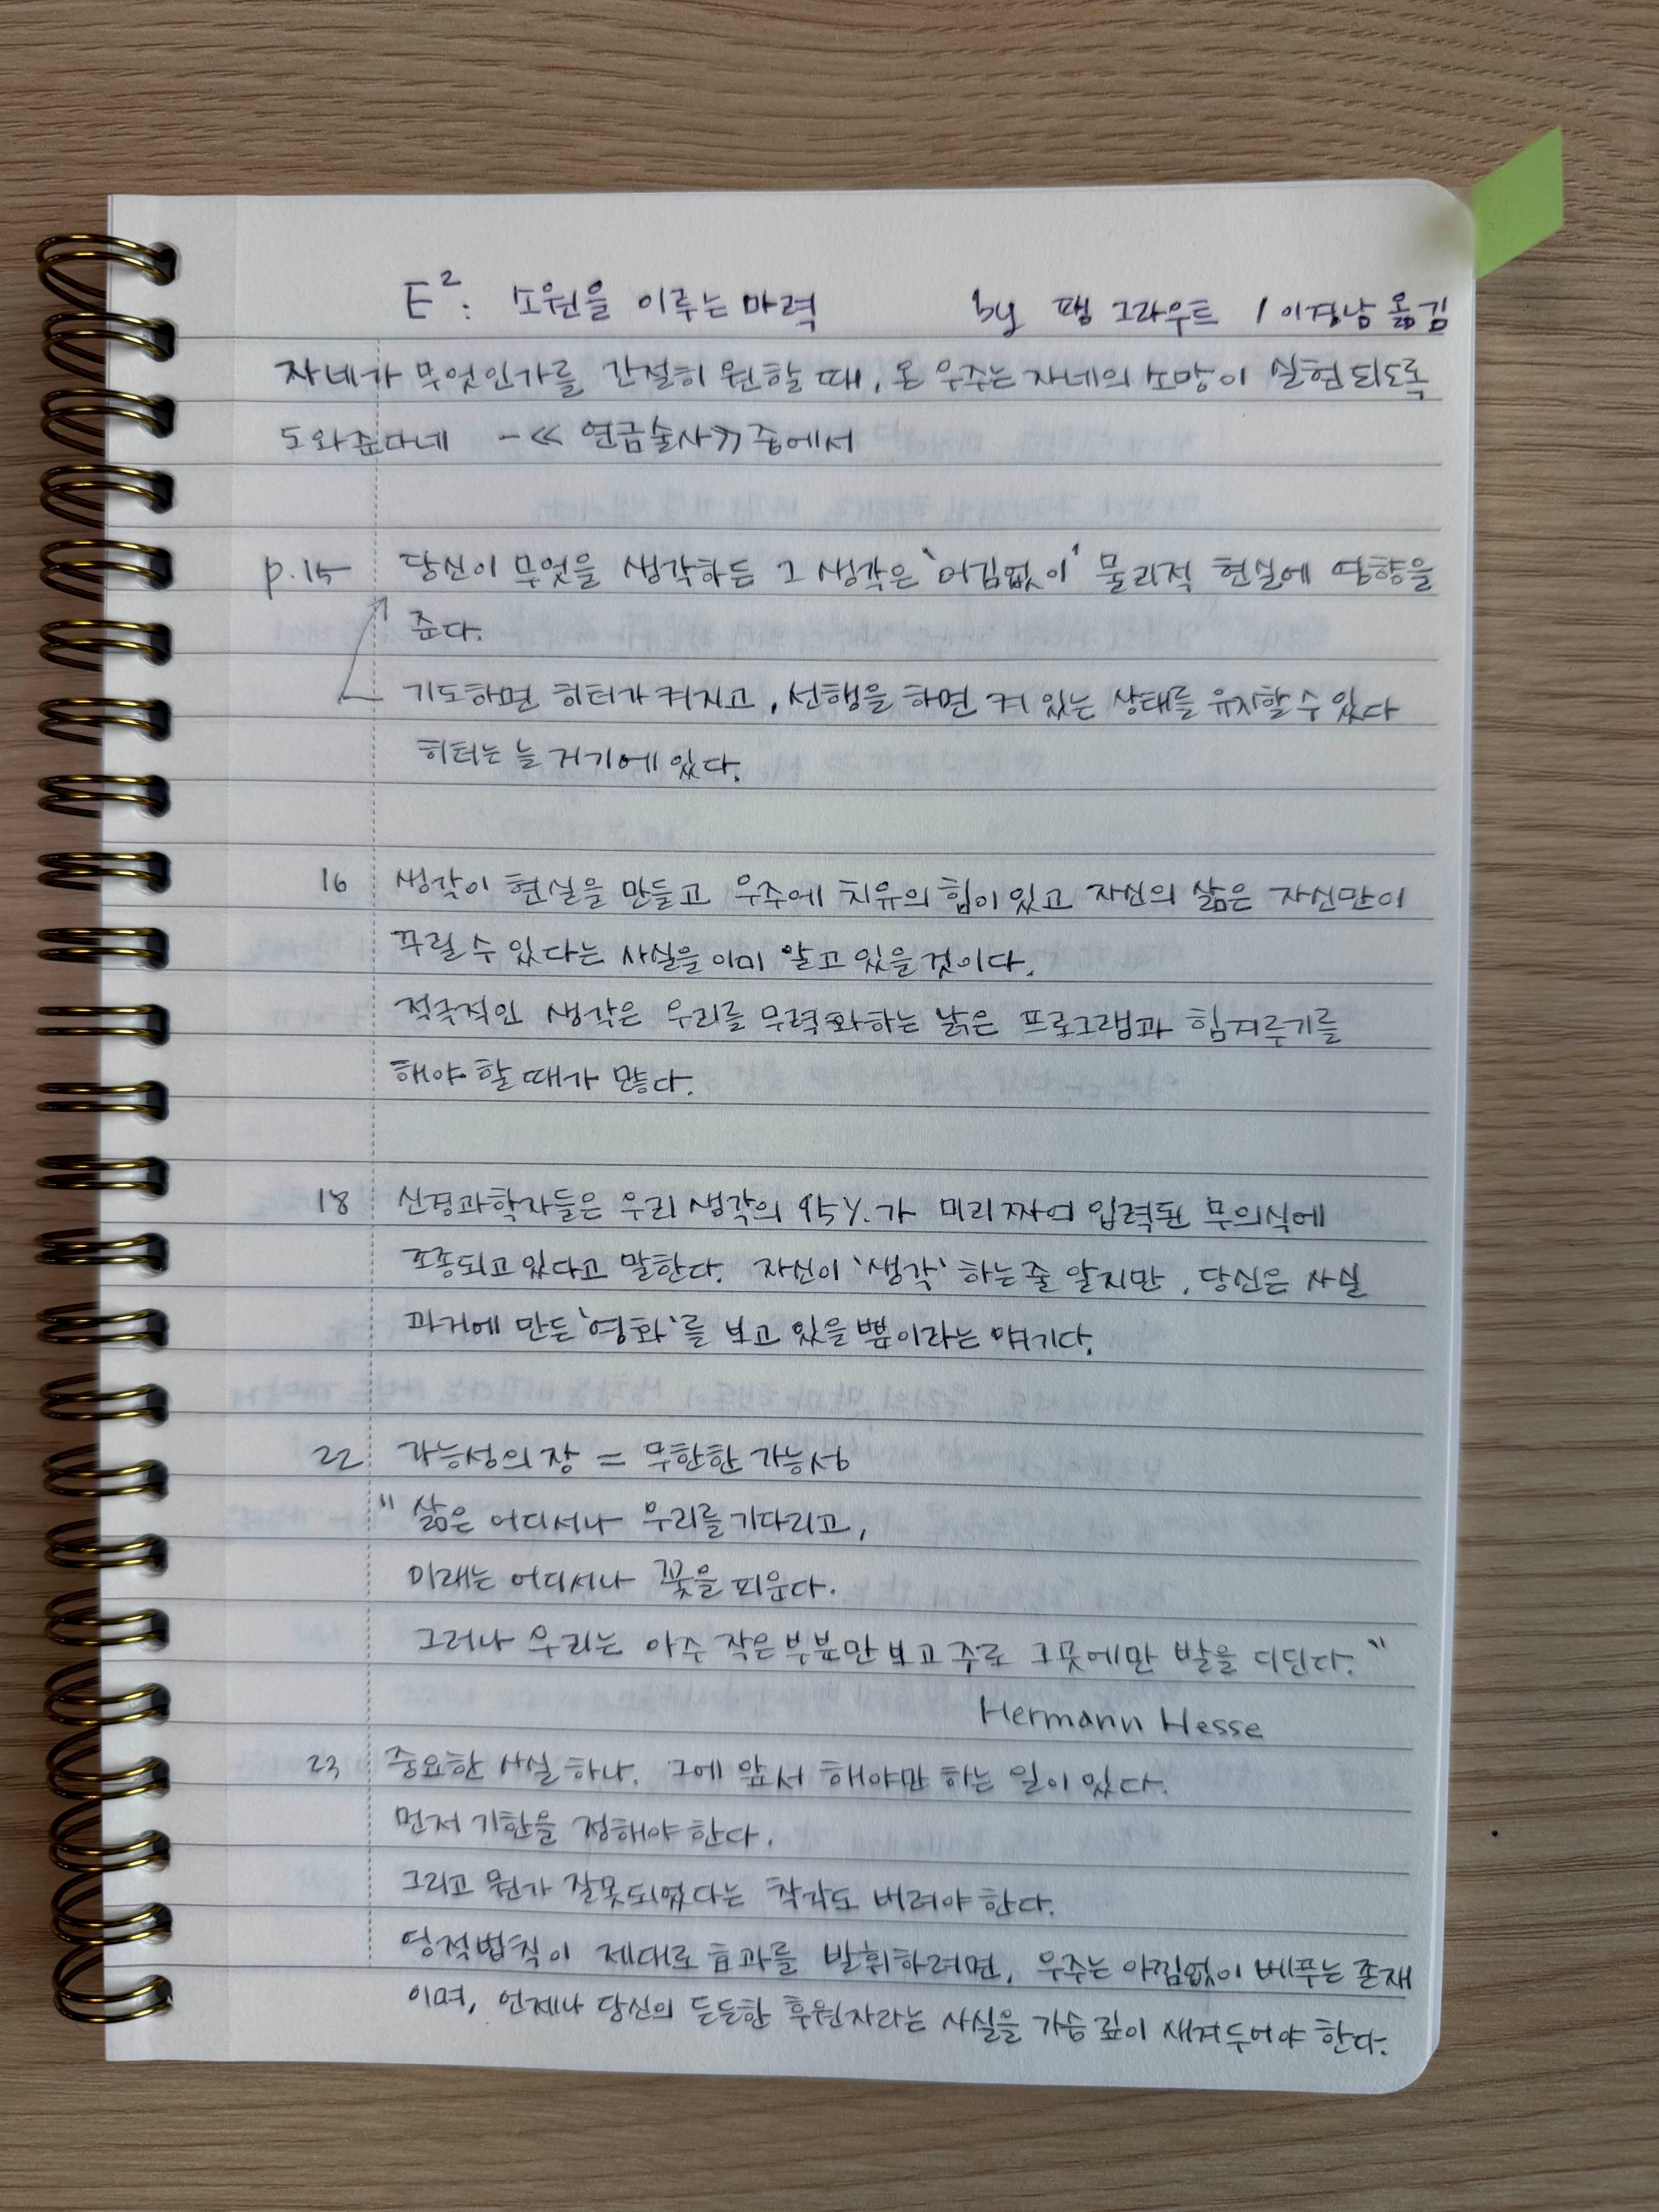 E²: 소원을 이루는 마력 by 팸 그라우트 / 이경남 옮김
자네가 무엇인가를 간절히 원할 때, 온 우주는 자네의 소망이 실현되도록
도와준다네 - << 연금술사 >> 중에서
p.15 당신이 무엇을 생각하든 그 생각은 '어김없이' 물리적 현실에 영향을
준다.
기도하면 히터가 켜지고, 선행을 하면 켜 있는 상태를 유지할 수 있다
히터는 늘 거기에 있다.
16 생각이 현실을 만들고 우주에 치유의 힘이 있고 자신의 삶은 자신만이
꾸릴 수 있다는 사실을 이미 알고 있을 것이다.
적극적인 생각은 우리를 무력화하는 낡은 프로그램과 힘겨루기를
해야 할 때가 많다.
18 신경과학자들은 우리 생각의 95%가 미리 짜여 입력된 무의식에
조종되고 있다고 말한다. 자신이 '생각' 하는 줄 알지만, 당신은 사실
과거에 만든 '영화'를 보고 있을 뿐이라는 얘기다.
22 가능성의 장 = 무한한 가능성
" 삶은 어디서나 우리를 기다리고,
미래는 어디서나 꽃을 피운다.
그러나 우리는 아주 작은 부분만 보고 주로 그곳에만 발을 디딘다. "
Hermann Hesse
23 중요한 사실 하나. 그에 앞서 해야만 하는 일이 있다.
먼저 기한을 정해야 한다.
그리고 뭔가 잘못되었다는 착각도 버려야 한다.
영적법칙이 제대로 효과를 발휘하려면, 우주는 아낌없이 베푸는 존재
이며, 언제나 당신의 든든한 후원자라는 사실을 가슴 깊이 새겨두어야 한다.